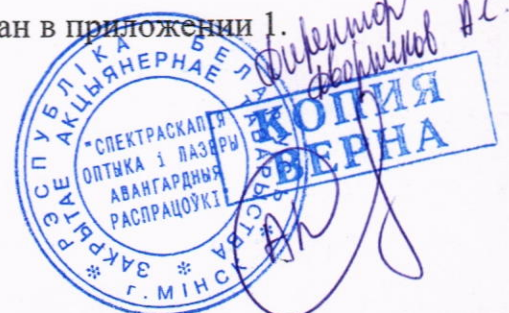 ан в приложении 1.
Директор
Дворников А.С.
РЭСПУБЛІКА БЕЛАРУСЬ
ЗАКРЫТАЕ АКЦЫЯНЕРНАЕ ТАВАРЫСТВА
"СПЕКТРАСКАПІЯ
ОПТЫКА І ЛАЗЕРЫ
АВАНГАРДНЫЯ
РАСПРАЦОЎКІ"
г. МІНСК
КОПИЯ
ВЕРНА